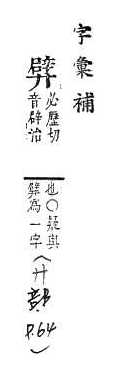 字彙補
必歷切
音辟治
也○疑與
為一字
(廾部
P.64)